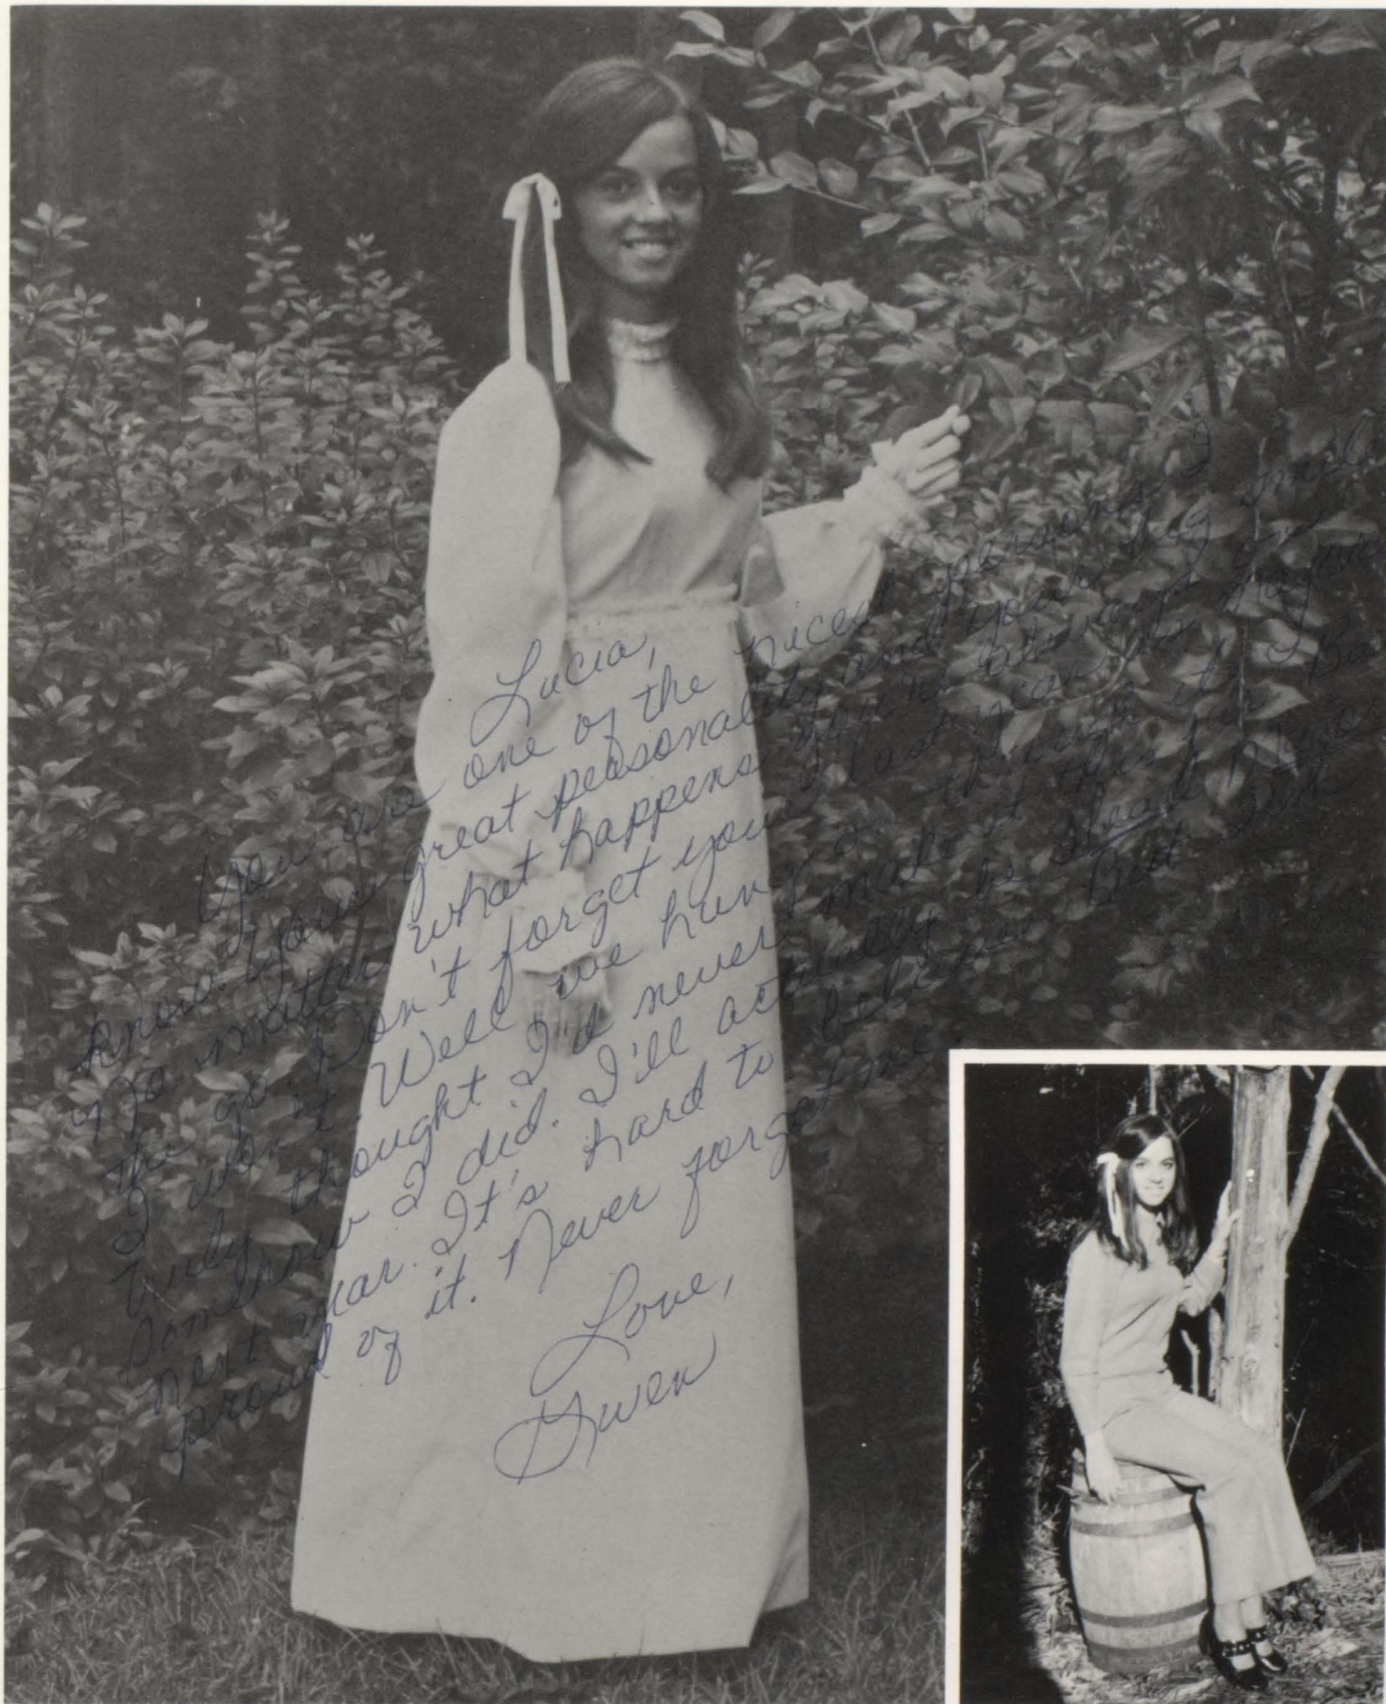 Lucia,
You are one of the nicest persons I
know. Your great personality and your big smile
No matter what happens you're always on
the go. Don't forget your last year
I won't. Well we hung
truly thought I'd never make it this far. But
somehow I did. I'll actually be Head
next year. It's hard to believe But I'm
proud of it. Never forget me.
Love,
Gwen